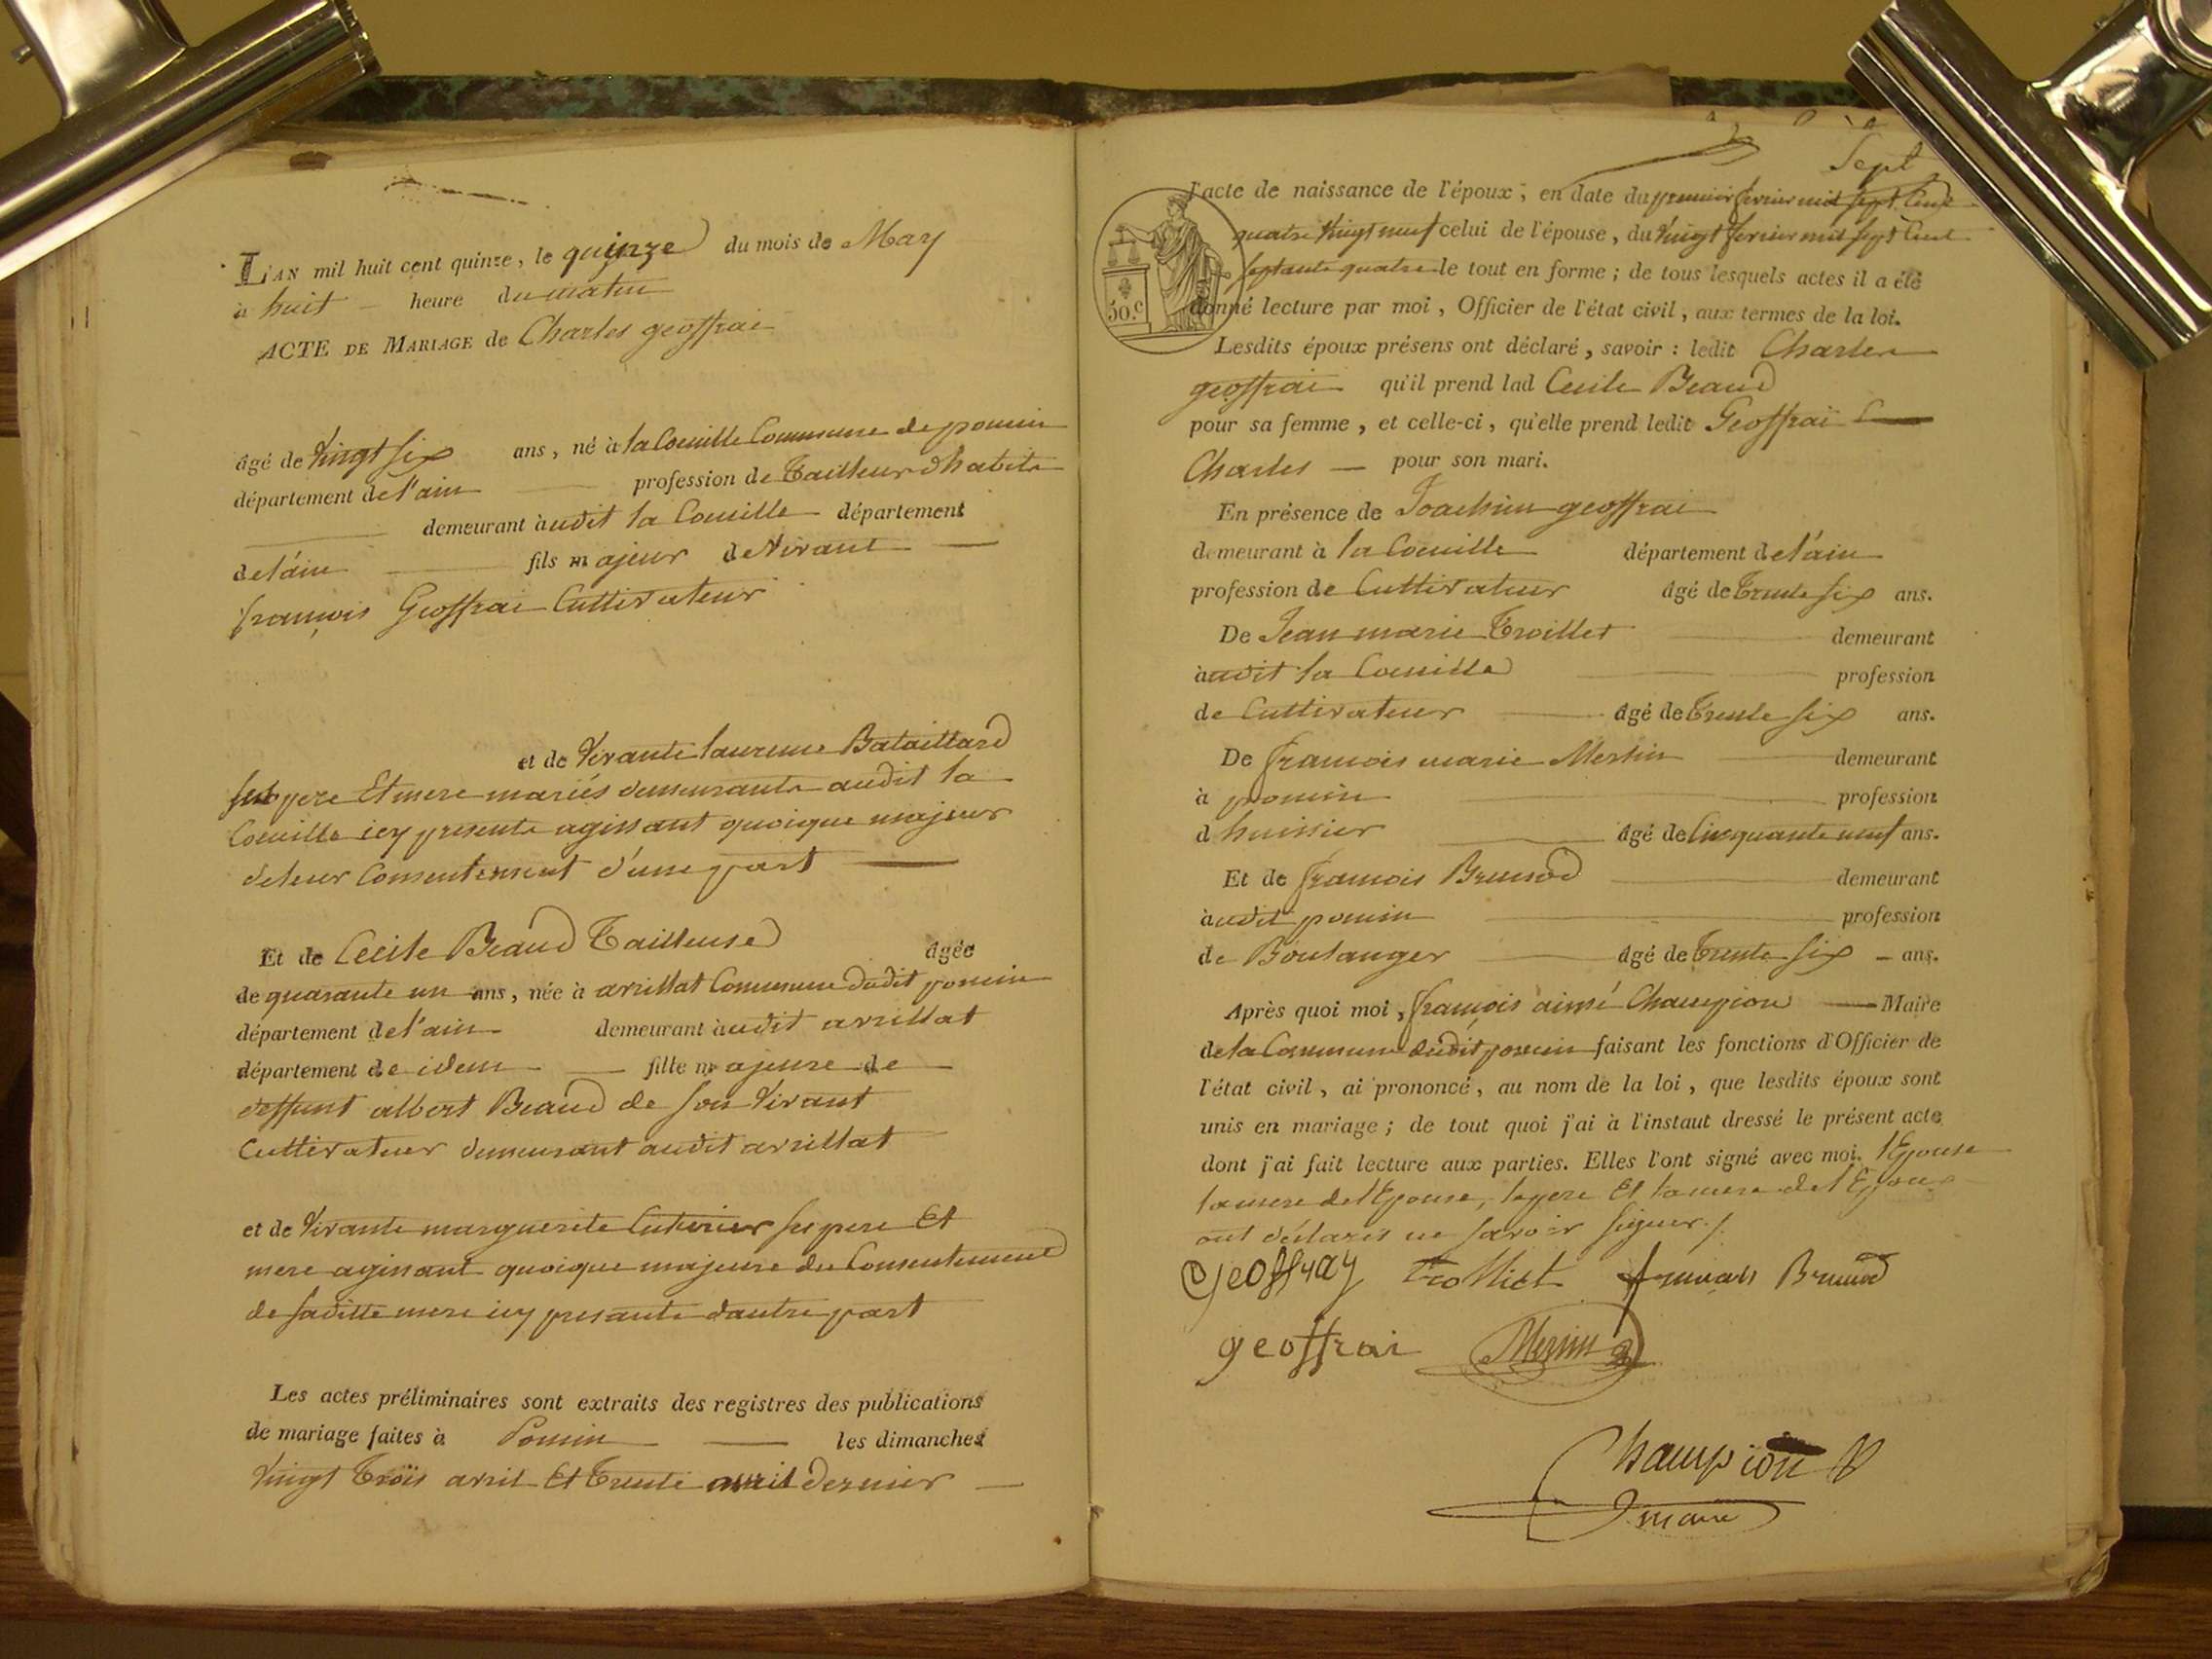 L'AN mil huit cent quinze, le quinze du mois de May
à huit heure du matin
ACTE DE MARIAGE de Charles geoffrai
âgé de vingt six ans, né à la Couille Commune de poncin
département de l'ain profession de Tailleur d'habits
demeurant audit la Couille département
de l'ain fils majeur de vivant
françois Geoffrai Cultivateur
et de vivante laurence Bataillard
ses pere et mere mariés demeurants audit la
Couille icy presents agissant quoique majeur
de leur Consentement d'une part
Et de Cecile Beaud Tailleuse âgée
de quarante un ans, née à avrillat Commune dudit poncin
département de l'ain demeurant audit avrillat
département de idem fille majeure de
deffunt albert Beaud de son vivant
Cultivateur demeurant audit avrillat
et de vivante marguerite ses pere et
mere agissant quoique majeure du Consentement
de saditte mere icy presante d'autre part
Les actes préliminaires sont extraits des registres des publications
de mariage faites à Poncin les dimanches
vingt trois avril et trente avril dernier
Sept
l'acte de naissance de l'époux, en date du premier fevrier mil sept Cent
quatre vingt neuf celui de l'épouse, du vingt fevrier mil sept Cent
septante quatre le tout en forme ; de tous lesquels actes il a été
donné lecture par moi, Officier de l'état civil, aux termes de la loi.
50.c
Lesdits époux présens ont déclaré, savoir : ledit Charles
geoffrai qu'il prend lad Cecile Beaud
pour sa femme, et celle-ci, qu'elle prend ledit Geoffrai
Charles pour son mari.
En présence de Joachim geoffrai
demeurant à la Couille département de l'ain
profession de Cultivateur âgé de trente six ans.
De Jean marie Trolliet demeurant
àudit la Couille profession
de Cultivateur âgé de trente six ans.
De françois marie Merlin demeurant
à poncin profession
d'huissier âgé de Cinquante neuf ans.
Et de françois Brunod demeurant
àudit poncin profession
de Boulanger âgé de trente six ans.
Après quoi moi, françois aimé Champion Maire
de la Commune dudit poncin faisant les fonctions d'Officier de
l'état civil, ai prononcé, au nom de la loi, que lesdits époux sont
unis en mariage ; de tout quoi j'ai à l'instaut dressé le présent acte
dont j'ai fait lecture aux parties. Elles l'ont signé avec moi. l'Epouse
la mere de l'Epouse, le pere et la mere de l'Epoux
ont déclarés ne savoir signer ./.
Geoffray Trolliet françois Brunod
geoffrai Merlin
Champion
maire